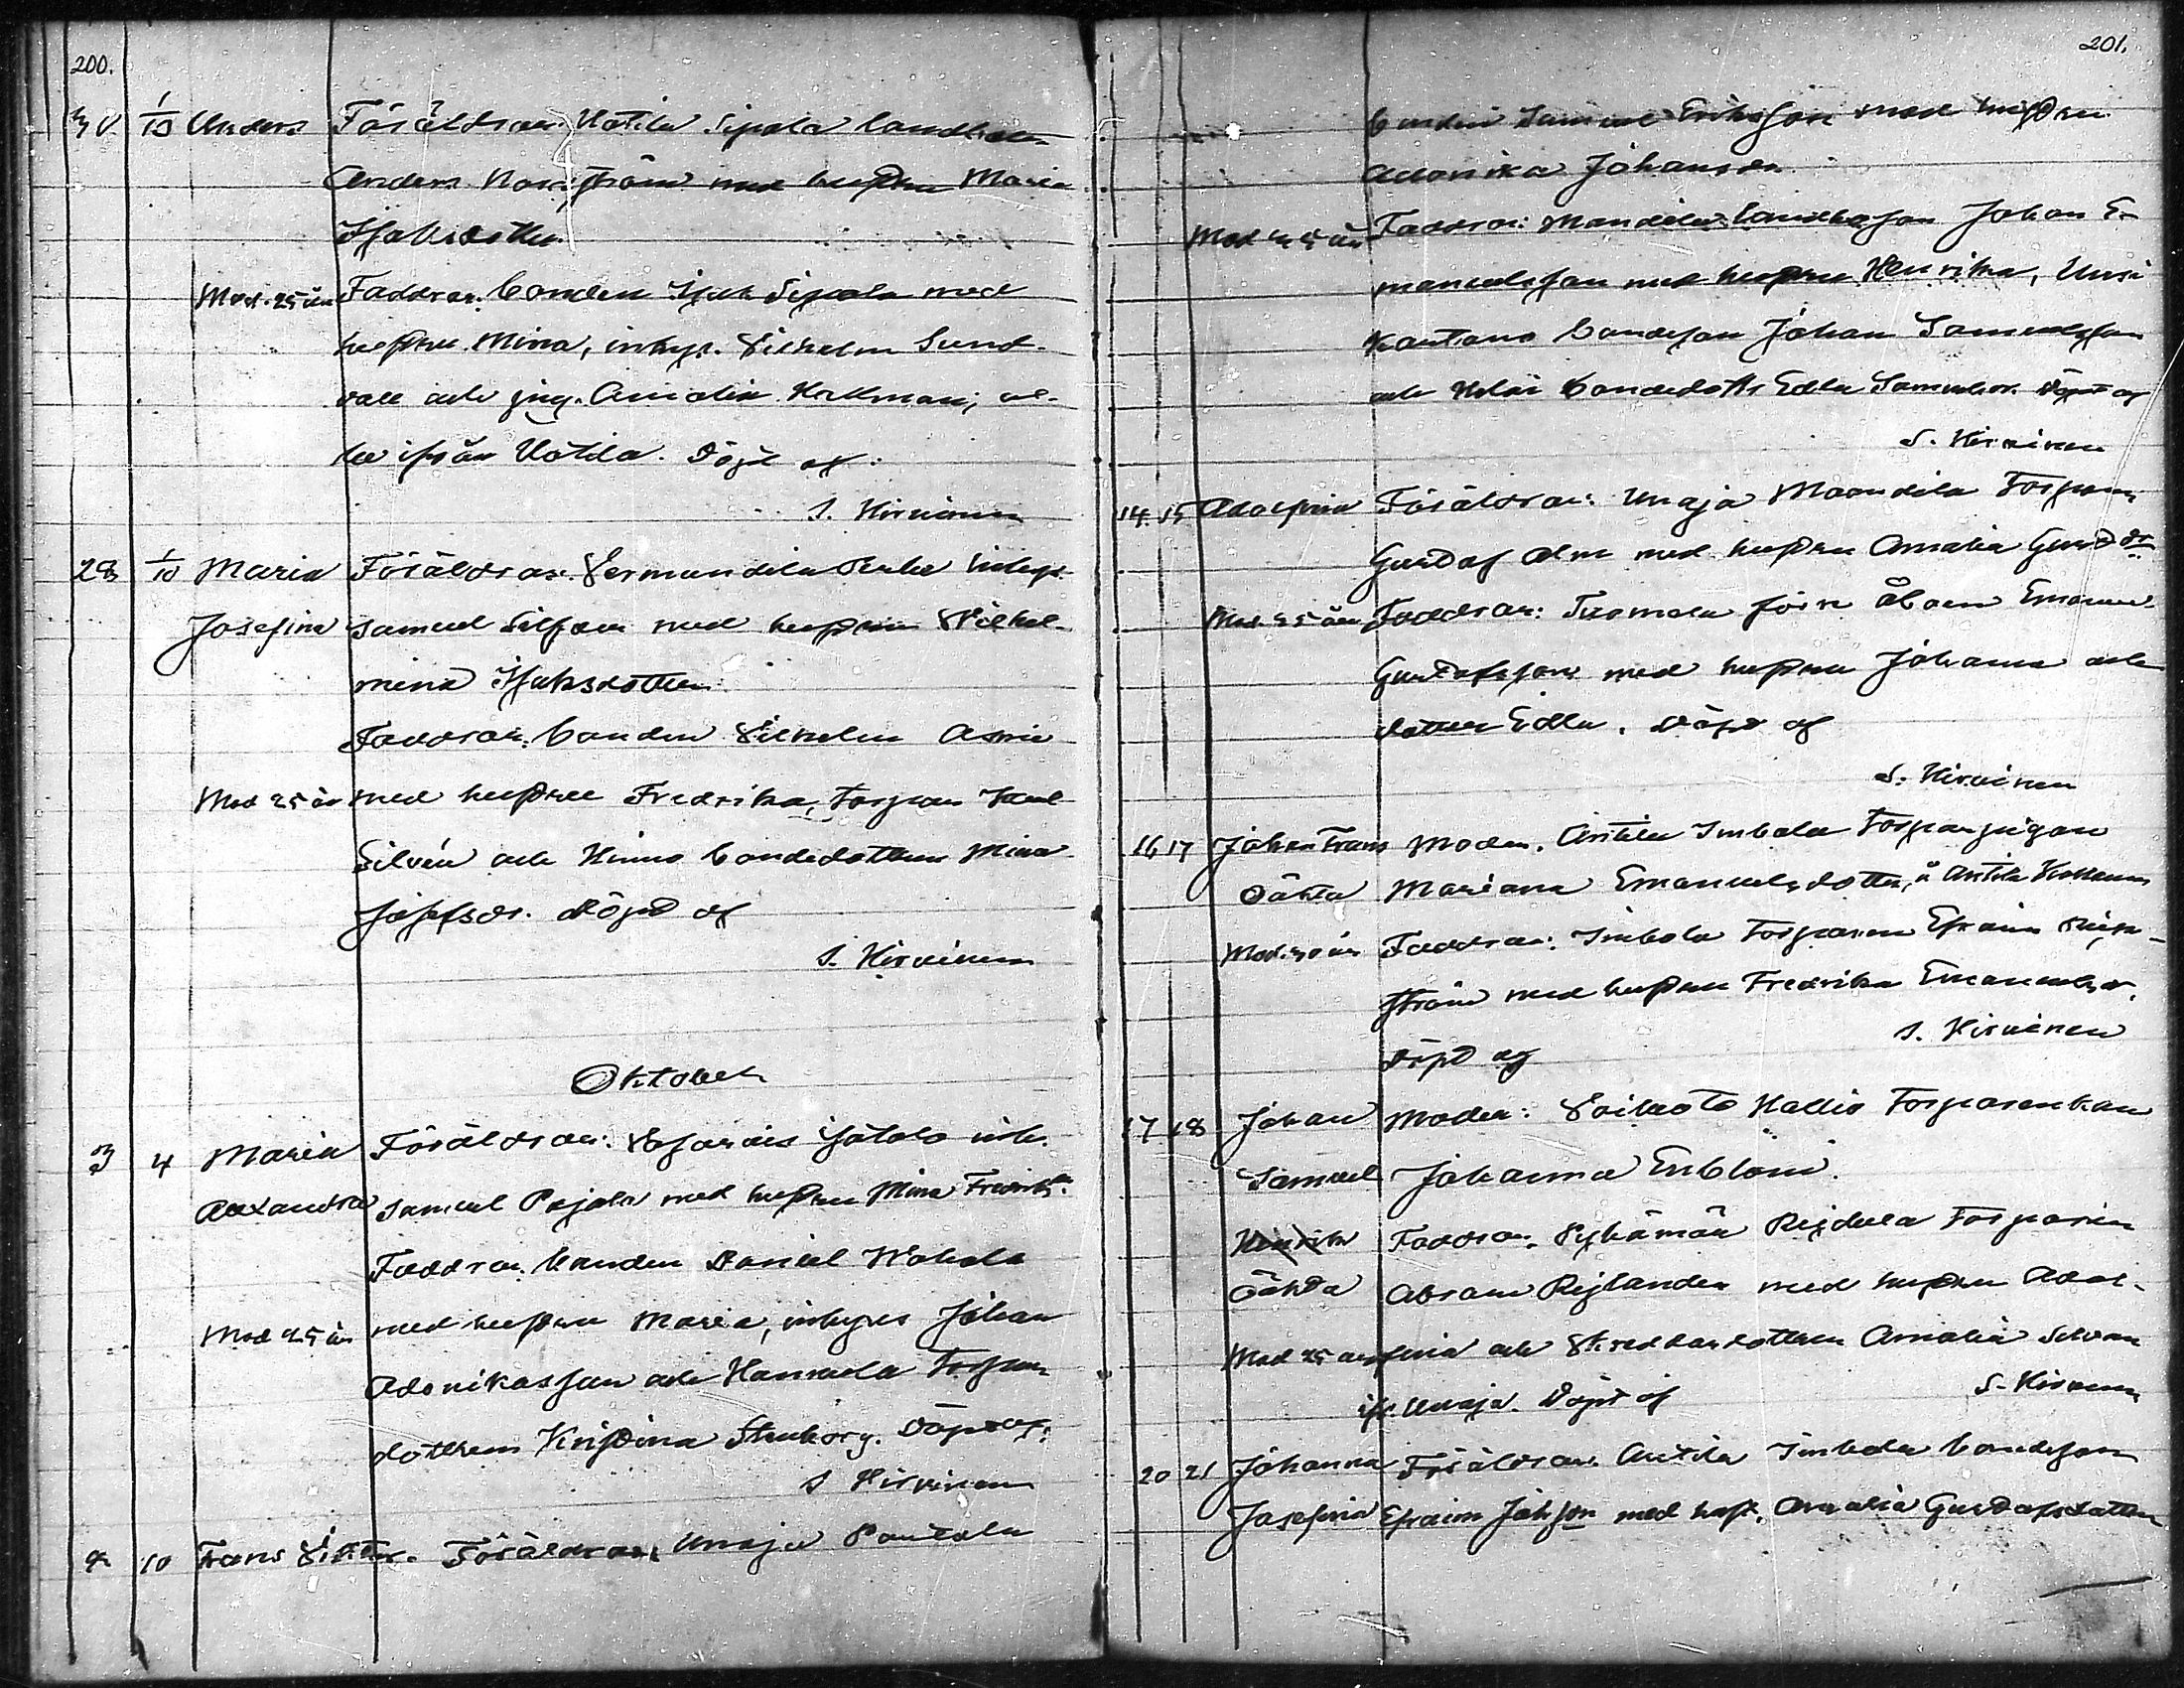 200.
30 1/10 Anders Föräldrar. Uotila Sipola bondeson
Anders Norrström med hustru Maria
Isaksdotter.
Mod. 25 år Faddrar. bonden Isak Sipola med
hustru Mina, inhys. Vilhelm Sund-
vall och pig. Amalia Hellman; al-
la ifrån Uotila. Döpt af:
S. Hirvinen
28 1/10 Maria Föräldrar. Vermundila inhys.
Josefina Samuel med hustru Vilhel-
mina Isaksdotter.
Faddrar. bonden Vilhelm
Mod 25 år med hustru Fredrika, Torpar
Silvén och Hinno bondedotter Mina
Josefsdr. Döpt af
S. Hirvinen
Oktober
3 4 Maria Föräldrar: inh.
Alexandra Samuel Pojala med hustru Mina Fredriksdr.
Faddrar. bonden Daniel
Mod 25 år med hustru Maria, inhyses Johan
Adonikasson och Hannula Torpare
dottren Kristina Stenborg. Döpt af:
S Hirvinen
4 10 Frans Viktor. Föräldrar. Unaja Pautola
201.
bonden Samuel Eriksson med hustru
Adonika Johansdr.
Mod 25 år Faddrar: Mandila bondeson Johan E-
manuelsson med hustru Henrika, Uusi
Kauttano bondeson Johan Samuelsson
och bondedottr Edla Samuelsdr. Döpt af
S. Hirvinen
14. 15 Adolfina Föräldrar: Unaja Maandila Torparen
Gustaf Alm med hustru Amalia Gust. dr
Mod. 25 år Faddrar: Tuomola åboen Emanuel
Gustafsson med hustru Johanna och
dotter Edla. Döpt af
S. Hirvinen
16 17 Johan Frans Moder. Anttila Imbola Torparpigan
Oäkta Mariana Emanuelsdotter, å Anttila
Mod. 30 år Faddrar: Imbola Torparen Efraim
ström med hustru Fredrika Emanuelsdr.
S. Hirvinen
Döpt af
17 18 Johan Moder: Voiluoto Kallio Torparenkan
Samuel Johanna Enblom.
Faddrar. Pyhämaa Reijdula Torparen
Oäkta Abram Rejlander med hustru Adol-
Mod 25 år fina och Skreddardottren Amalia
ifr. Unaja. Döpt af S. Hirvinen
20 21 Johanna Föräldrar. Anttila Imbola bondeson
Josefina Efraim Johsson med hust. Amalia Gustafsdotter